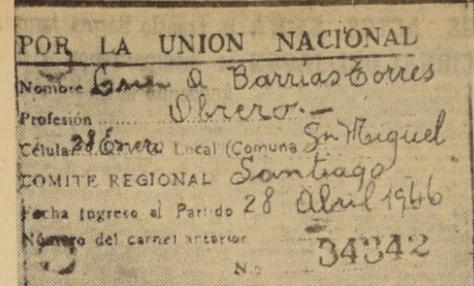 POR LA UNION NACIONAL
Nombre A Barrias Torres
Profesión Obrero.-
Célula 28 Enero Local (Comuna Sn Miguel
COMITE REGIONAL Santiago
Fecha Ingreso al Partido 28 Abril 1946
Número del carnet anterior
No 34342